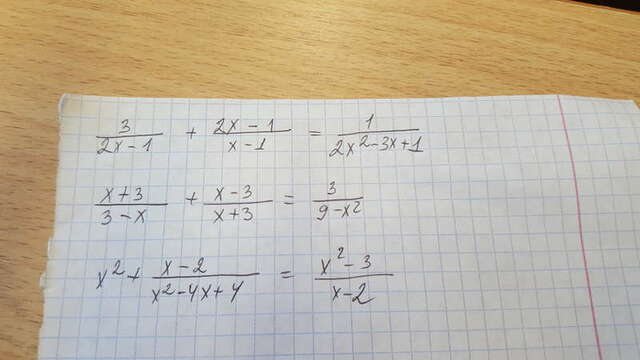 3/(2x-1) + (2x-1)/(x-1) = 1/(2x²-3x+1)
(x+3)/(3-x) + (x-3)/(x+3) = 3/(9-x²)
x² + (x-2)/(x²-4x+4) = (x²-3)/(x-2)